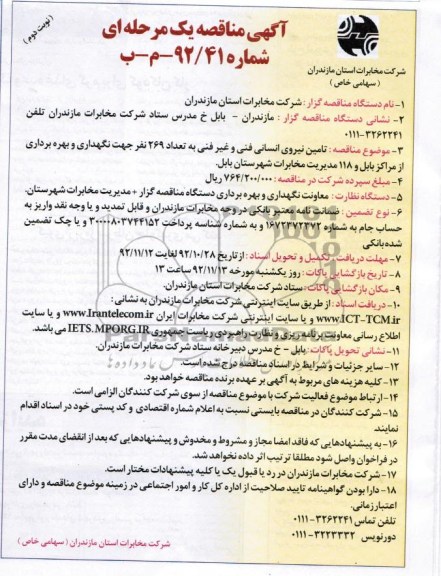 (نوبت دوم)
آگهی مناقصه یک مرحله ای
شماره ۹۲/۴۱-م-ب
شرکت مخابرات استان مازندران
( سهامی خاص )
۱- نام دستگاه مناقصه گزار : شرکت مخابرات استان مازندران
۲- نشانی دستگاه مناقصه گزار : مازندران - بابل خ مدرس ستاد شرکت مخابرات مازندران تلفن
۰۱۱۱-۳۲۶۲۲۴۱
۳- موضوع مناقصه : تامین نیروی انسانی فنی و غیر فنی به تعداد ۲۶۹ نفر جهت نگهداری و بهره برداری
از مراکز بابل و ۱۱۸ مدیریت مخابرات شهرستان بابل.
۴- مبلغ سپرده شرکت در مناقصه : ۷۶۴/۲۰۰/۰۰۰ ریال
۵- دستگاه نظارت : معاونت نگهداری و بهره برداری دستگاه مناقصه گزار + مدیریت مخابرات شهرستان.
۶- نوع تضمین : ضمانت نامه معتبر بانکی در وجه مخابرات مازندران و قابل تمدید و یا وجه نقد واریز به
حساب جام به شماره ۱۶۷۲۳۷۲۳۷۲ و به شماره شناسه پرداخت ۳۰۰۰۰۸۰۳۷۴۴۱۵۲ و یا چک تضمین
شده بانکی
۷- مهلت دریافت ، تکمیل و تحویل اسناد : از تاریخ ۹۲/۱۰/۲۸ لغایت ۹۲/۱۱/۱۲
۸- تاریخ بازگشایی پاکات : روز یکشنبه مورخه ۹۲/۱۱/۱۳ ساعت ۱۳
۹- مکان بازگشایی پاکات : ستاد شرکت مخابرات استان مازندران.
۱۰- دریافت اسناد : از طریق سایت اینترنتی شرکت مخابرات مازندران به نشانی :
www.ICT-TCM.ir و یا سایت اینترنتی شرکت مخابرات ایران www.Irantelecom.ir و یا سایت
اطلاع رسانی معاونت برنامه ریزی و نظارت راهبردی ریاست جمهوری IETS.MPORG.IR می باشد.
۱۱- نشانی تحویل پاکات : بابل - خ مدرس دبیرخانه ستاد شرکت مخابرات مازندران.
۱۲- سایر جزئیات و شرایط در اسناد مناقصه درج شده است.
۱۳- کلیه هزینه های مربوط به آگهی بر عهده برنده مناقصه خواهد بود.
۱۴- ارتباط موضوع فعالیت شرکت با موضوع مناقصه از سوی شرکت کنندگان الزامی است.
۱۵- شرکت کنندگان در مناقصه بایستی نسبت به اعلام شماره اقتصادی و کد پستی خود در اسناد اقدام
نمایند.
۱۶- به پیشنهادهایی که فاقد امضا مجاز و مشروط و مخدوش و پیشنهادهایی که بعد از انقضای مدت مقرر
در فراخوان واصل شود مطلقا ترتیب اثر داده نخواهد شد.
۱۷- شرکت مخابرات مازندران در رد یا قبول یک یا کلیه پیشنهادات مختار است.
۱۸- دارا بودن گواهینامه تایید صلاحیت از اداره کل کار و امور اجتماعی در زمینه موضوع مناقصه و دارای
اعتبار زمانی.
تلفن تماس ۳۲۶۲۲۴۱-۰۱۱۱
دورنویس ۳۲۲۳۳۳۲-۰۱۱۱
شرکت مخابرات استان مازندران ( سهامی خاص )